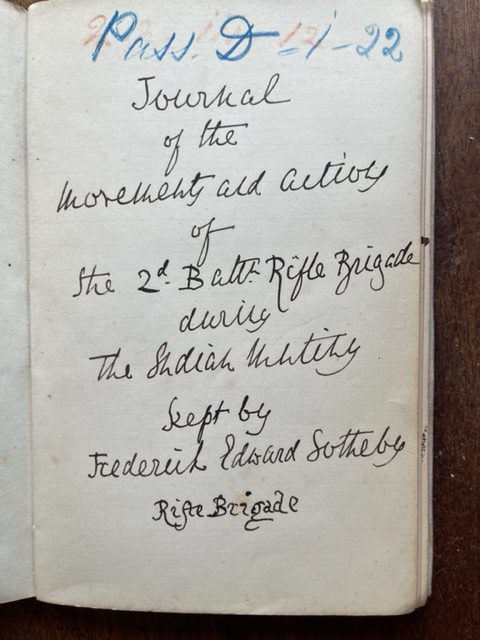 Pass. D -1-22
Journal
of the
Movements and Actions
of
the 2d. Battn. Rifle Brigade
during
The Indian Mutiny
kept by
Frederick Edward Sotheby
Rifle Brigade